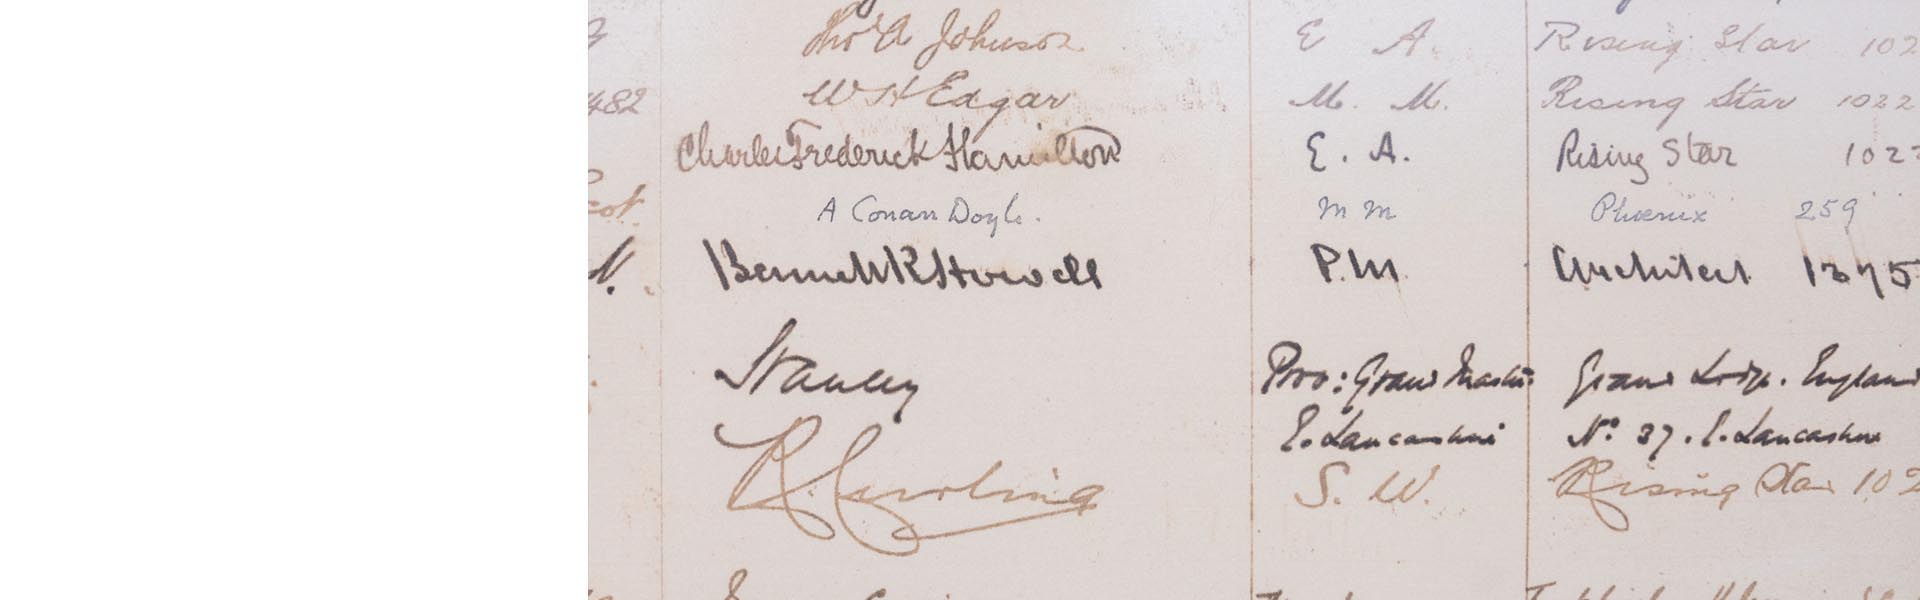 Tho A Johnson E A. Rising Star 102
482 W H Edgar M. M. Rising Star 1022
Charles Frederick Hamilton E. A. Rising Star 1022
A Conan Doyle. M M Phoenix 259
Bennett R Howell P.M. Architect 1375
Stanley Prov: Grand Master Grand Lodge. England
E. Lancashire No. 37. E. Lancashire
S. W. Rising Star 102